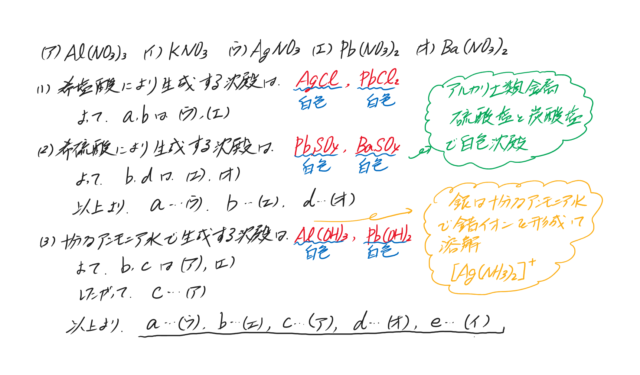 (ア) Al(NO3)3 (イ) KNO3 (ウ) AgNO3 (エ) Pb(NO3)2 (オ) Ba(NO3)2
(1) 希塩酸により生成する沈殿は、AgCl, PbCl2
白色 白色
よって a,bは(ウ),(エ)
アルカリ土類金属
硫酸塩と炭酸塩
で白色沈殿
(2) 希硫酸により生成する沈殿は、PbSO4, BaSO4
白色 白色
よって b.dは(エ).(オ)
以上より a…(ウ). b…(エ). d…(オ)
(3) 十分なアンモニア水で生成する沈殿は、Al(OH)3, Pb(OH)2
白色 白色
よって b,cは(ア),(エ)
したがって c…(ア)
銀は十分なアンモニア水
で錯イオンを形成して
溶解
[Ag(NH3)2]+
以上より a…(ウ). b…(エ), c…(ア), d…(オ), e…(イ)